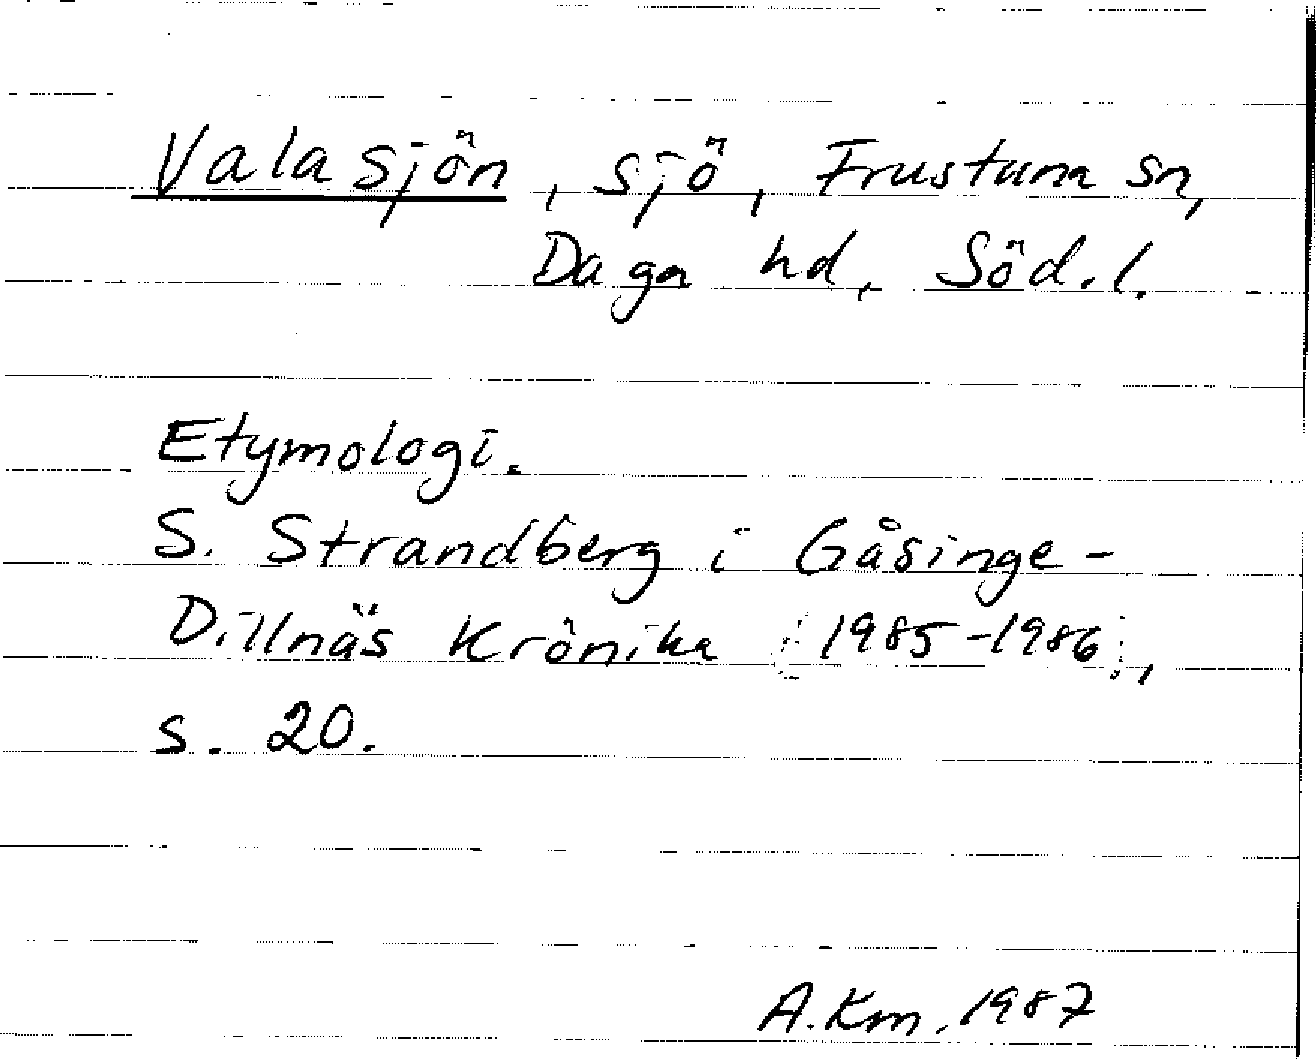 Valasjön, sjö, Frustuna sn,
Daga hd, Söd.l.
Etymologi.
S. Strandberg i Gåsinge-
Dillnäs Krönika (1985-1986),
s. 20.
A.Km. 1987